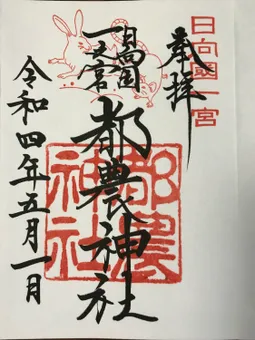 奉拝
日向國一宮
日向国
一之宮
都農神社
都農神社
令和四年五月一日